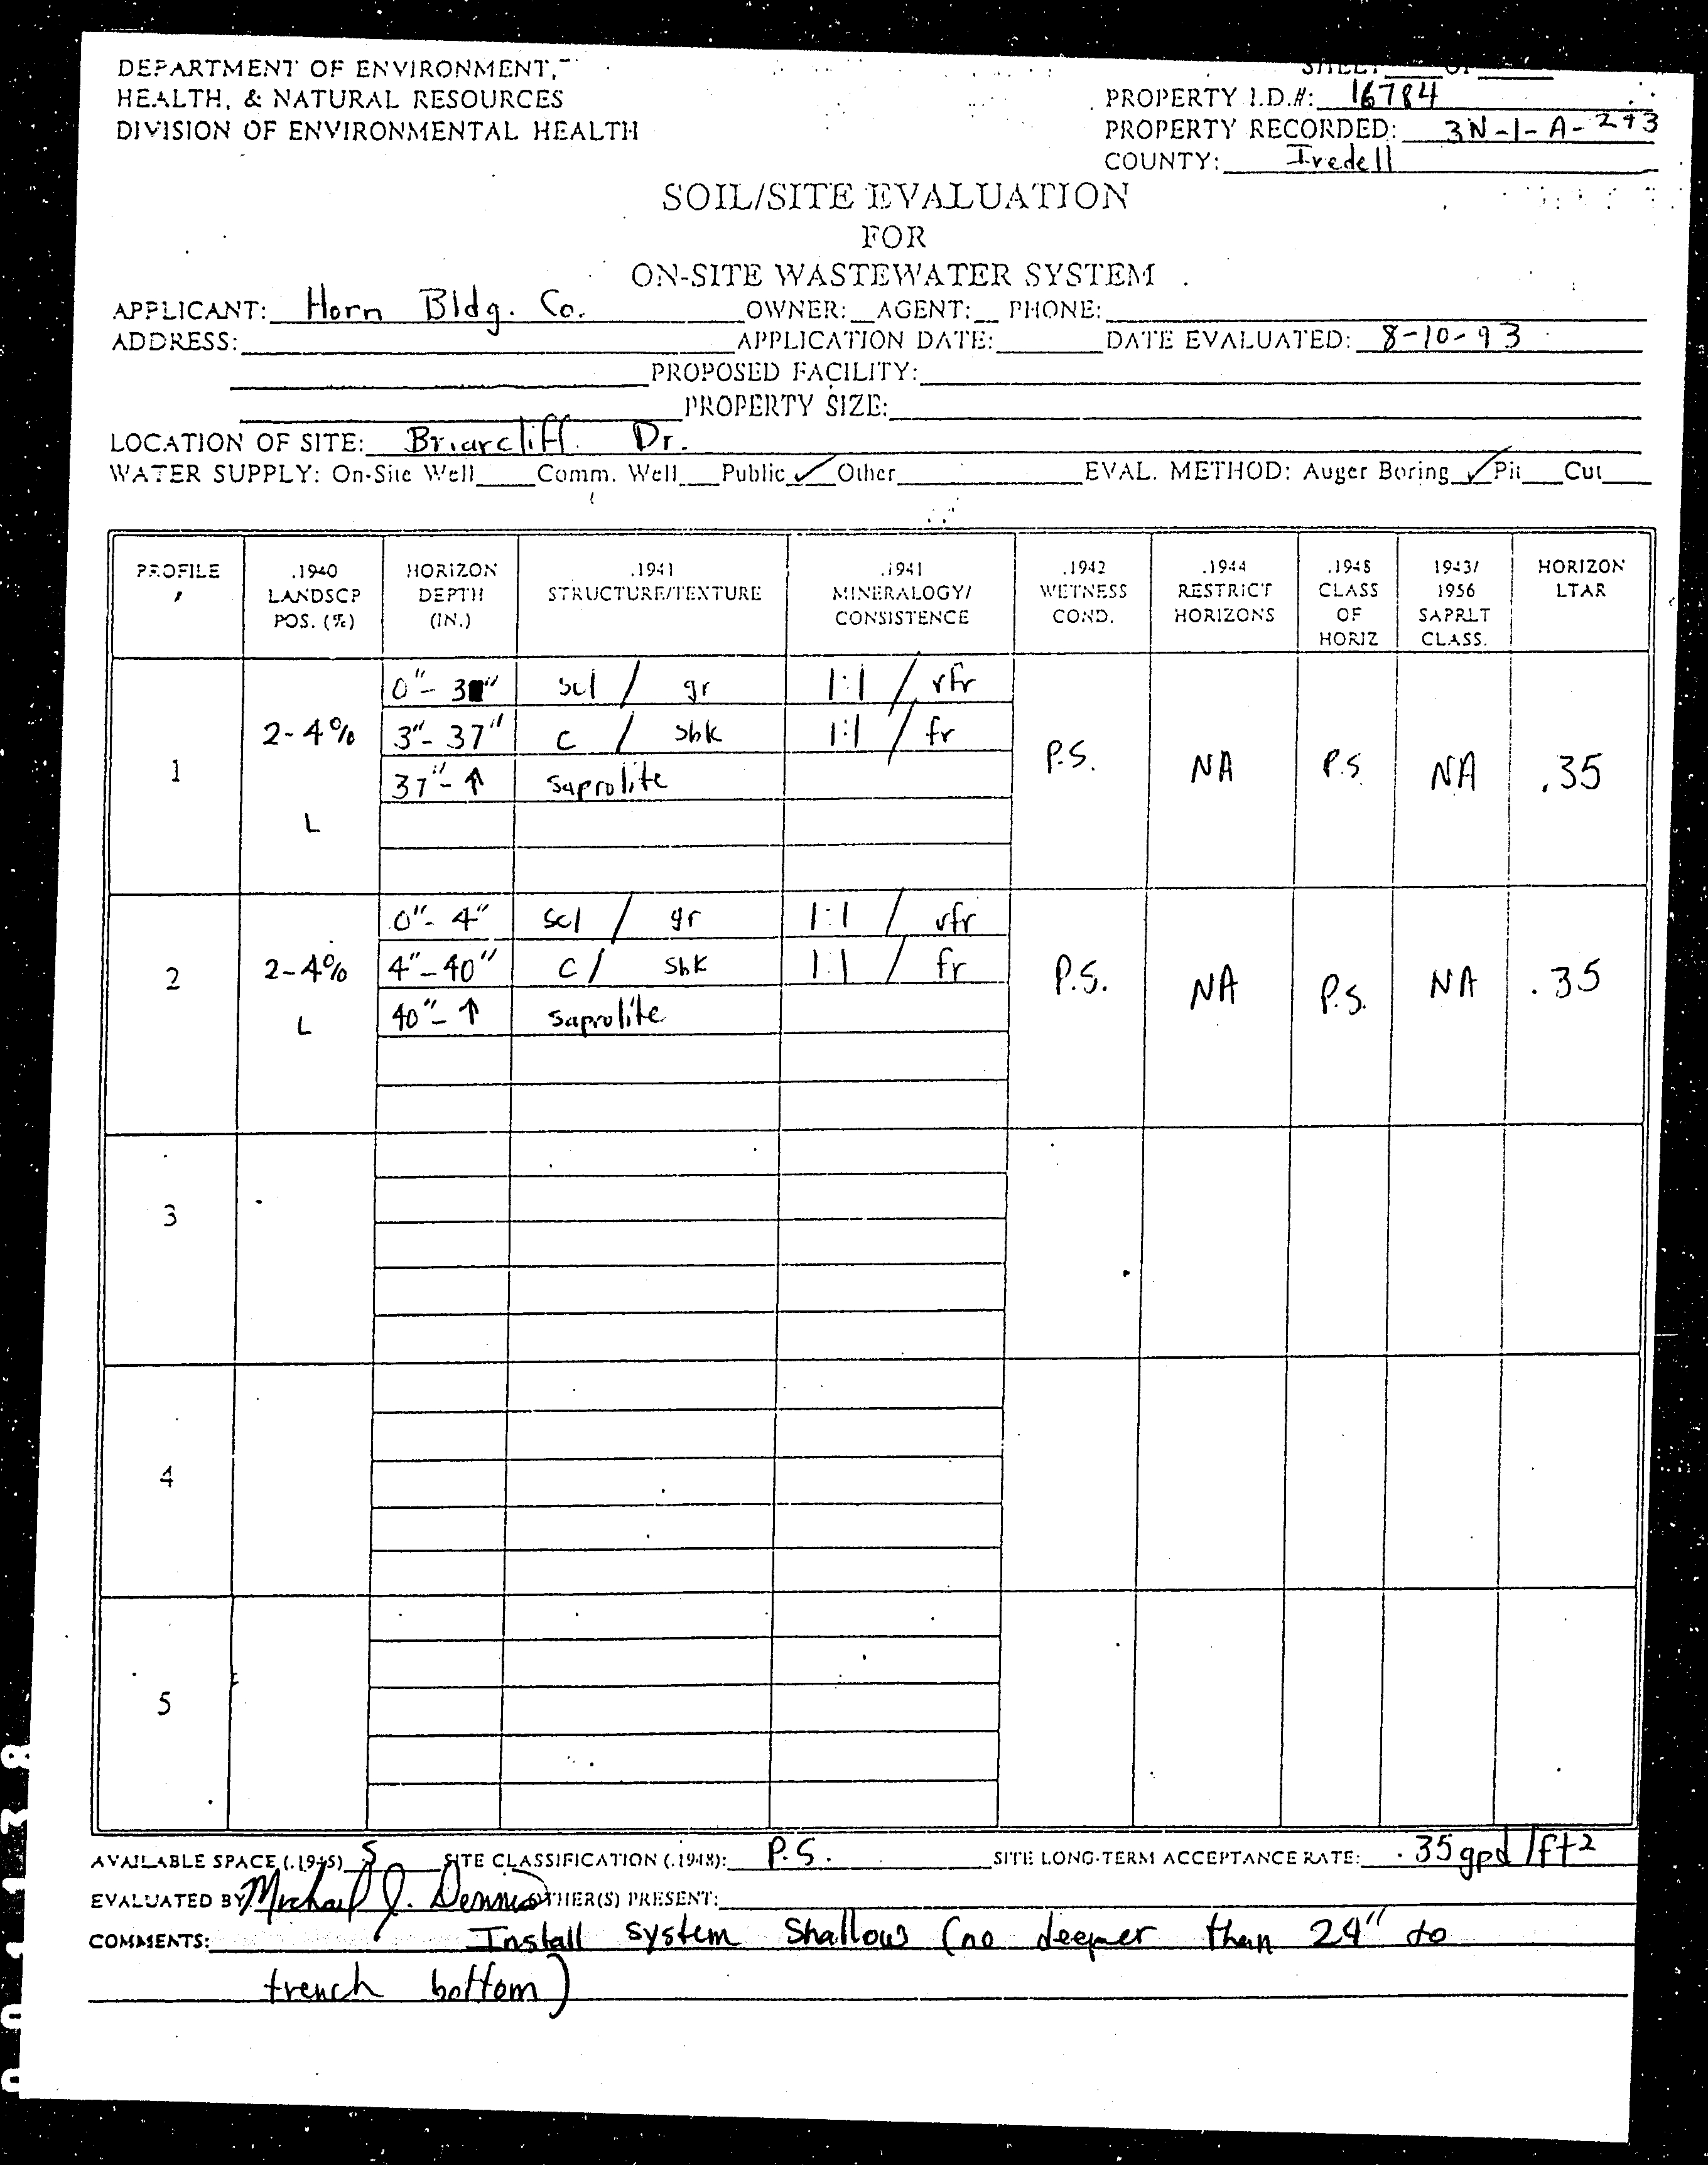 DEPARTMENT OF ENVIRONMENT,
HEALTH, & NATURAL RESOURCES
DIVISION OF ENVIRONMENTAL HEALTH
SHEET ____ OF ____
PROPERTY I.D.#: 16784
PROPERTY RECORDED: 3N-1-A-293
COUNTY: Iredell
SOIL/SITE EVALUATION
FOR
ON-SITE WASTEWATER SYSTEM
APPLICANT: Horn Bldg. Co. OWNER: __ AGENT: __ PHONE:
ADDRESS: APPLICATION DATE: DATE EVALUATED: 8-10-93
PROPOSED FACILITY:
PROPERTY SIZE:
LOCATION OF SITE: Briarcliff Dr.
WATER SUPPLY: On-Site Well____ Comm. Well___ Public ✓ Other EVAL. METHOD: Auger Boring ✓ Pit___ Cut___
PROFILE # .1940 LANDSCP POS. (%) HORIZON DEPTH (IN.) .1941 STRUCTURE/TEXTURE .1941 MINERALOGY/ CONSISTENCE .1942 WETNESS COND. .1944 RESTRICT HORIZONS .1948 CLASS OF HORIZ 1943/ 1956 SAPRLT CLASS. HORIZON LTAR
0"- 3" scl / gr 1:1 / vfr
1 2-4% 3"- 37" c / sbk 1:1 / fr P.S. NA P.S NA .35
37"- ↑ saprolite
L
0"- 4" scl / gr 1:1 / vfr
2 2-4% 4"-40" c / sbk 1:1 / fr P.S. NA P.S. NA .35
L 40"- ↑ saprolite
3
4
5
AVAILABLE SPACE (.1945) S SITE CLASSIFICATION (.1948): P.S. SITE LONG-TERM ACCEPTANCE RATE: .35 gpd/ft2
EVALUATED BY: Michael J. Dennis OTHER(S) PRESENT:
COMMENTS: Install system shallow (no deeper than 24" to
trench bottom)